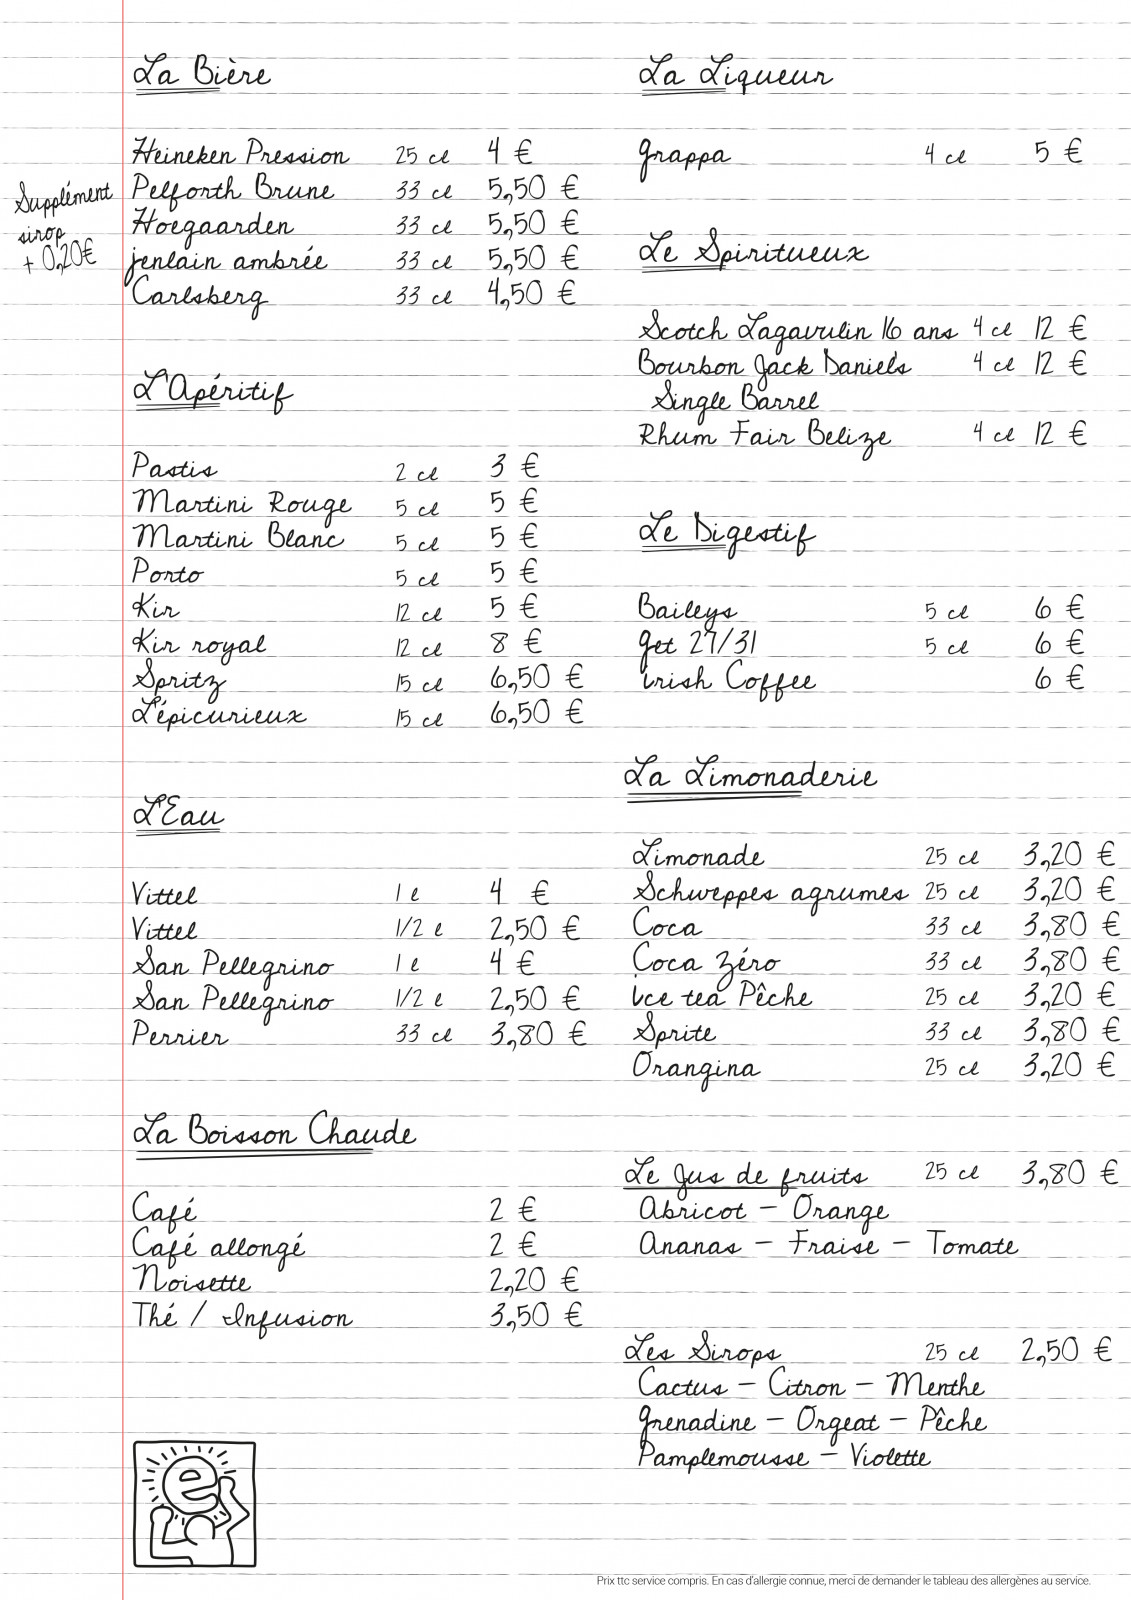 La Bière
Heineken Pression 25 cl 4 €
Pelforth Brune 33 cl 5,50 €
Hoegaarden 33 cl 5,50 €
jenlain ambrée 33 cl 5,50 €
Carlsberg 33 cl 4,50 €
Supplément
sirop
+ 0,20€
L'Apéritif
Pastis 2 cl 3 €
Martini Rouge 5 cl 5 €
Martini Blanc 5 cl 5 €
Porto 5 cl 5 €
Kir 12 cl 5 €
Kir royal 12 cl 8 €
Spritz 15 cl 6,50 €
L'épicurieux 15 cl 6,50 €
L'Eau
Vittel 1 l 4 €
Vittel 1/2 l 2,50 €
San Pellegrino 1 l 4 €
San Pellegrino 1/2 l 2,50 €
Perrier 33 cl 3,80 €
La Boisson Chaude
Café 2 €
Café allongé 2 €
Noisette 2,20 €
Thé / Infusion 3,50 €
e
La Liqueur
grappa 4 cl 5 €
Le Spiritueux
Scotch Lagavulin 16 ans 4 cl 12 €
Bourbon Jack Daniels 4 cl 12 €
Single Barrel
Rhum Fair Belize 4 cl 12 €
Le Digestif
Baileys 5 cl 6 €
get 27/31 5 cl 6 €
irish Coffee 6 €
La Limonaderie
Limonade 25 cl 3,20 €
Schweppes agrumes 25 cl 3,20 €
Coca 33 cl 3,80 €
Coca zéro 33 cl 3,80 €
ice tea Pêche 25 cl 3,20 €
Sprite 33 cl 3,80 €
Orangina 25 cl 3,20 €
Le Jus de fruits 25 cl 3,80 €
Abricot – Orange
Ananas – Fraise – Tomate
Les Sirops 25 cl 2,50 €
Cactus – Citron – Menthe
grenadine – Orgeat – Pêche
Pamplemousse – Violette
Prix ttc service compris. En cas d'allergie connue, merci de demander le tableau des allergènes au service.